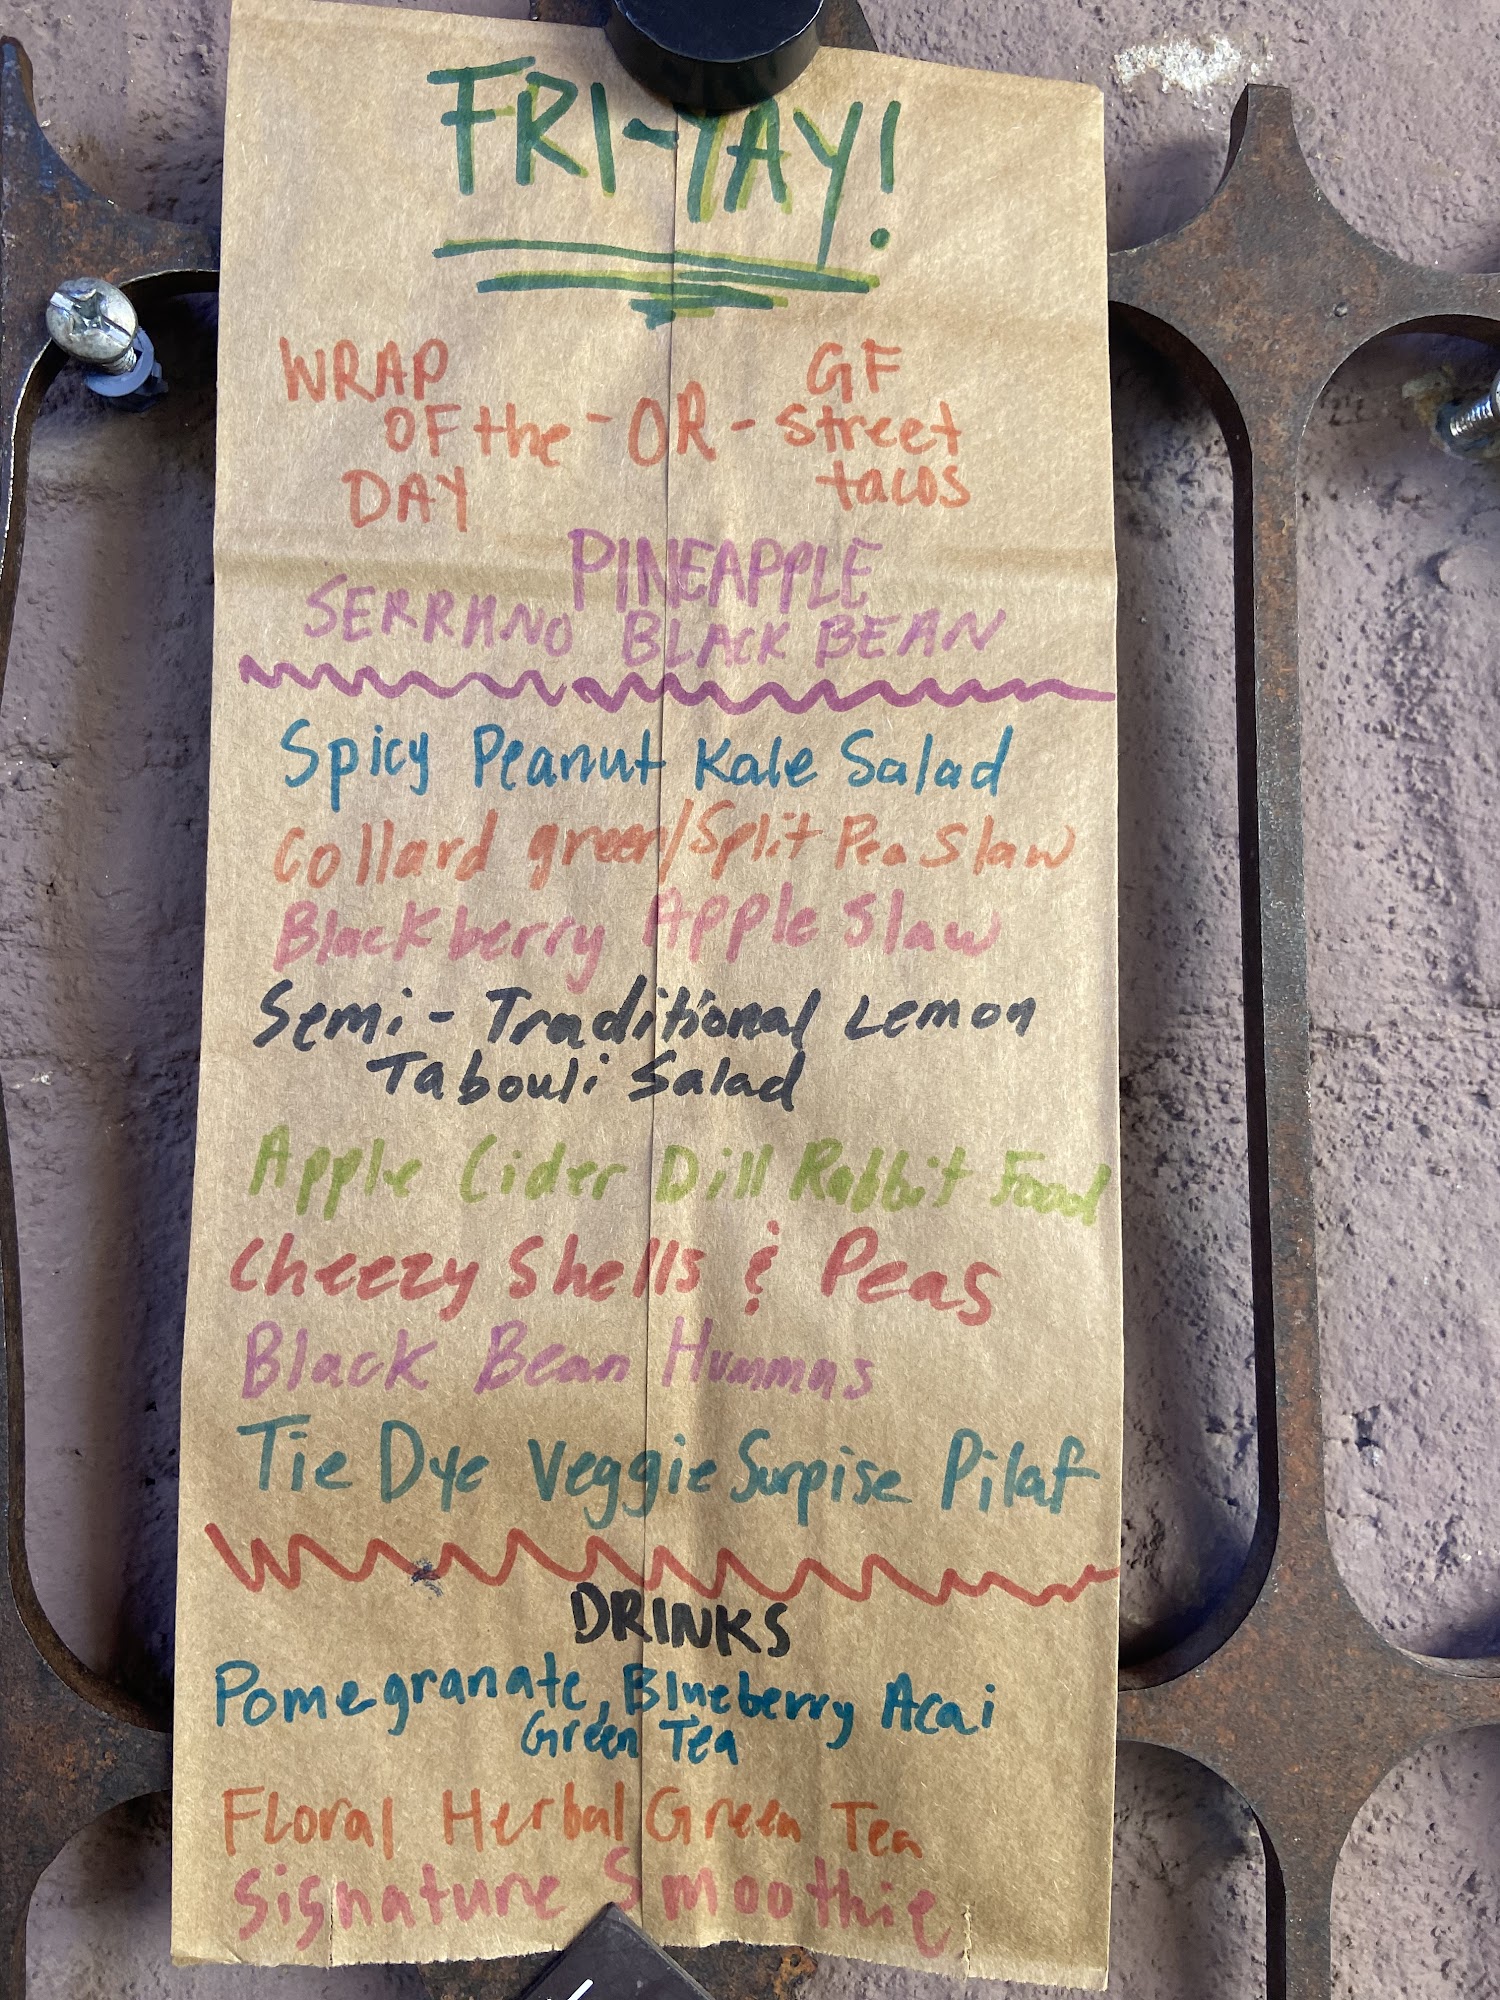 FRI-YAY!
WRAP OF the DAY -OR- GF street tacos
PINEAPPLE
SERRANO BLACK BEAN
Spicy Peanut Kale Salad
Collard green/Split Pea Slaw
Blackberry Apple Slaw
Semi-Traditional Lemon
Tabouli Salad
Apple Cider Dill Rabbit Food
Cheezy Shells & Peas
Black Bean Hummus
Tie Dye Veggie Surpise Pilaf
DRINKS
Pomegranate, Blueberry Acai
Green Tea
Floral Herbal Green Tea
Signature Smoothie